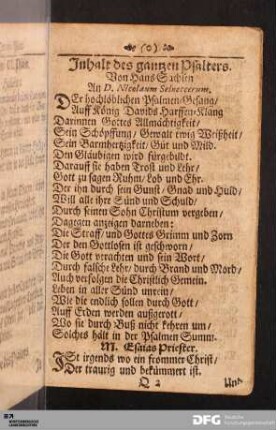 (o)
Inhalt des gantzen Psalters.
Von Hans Sachsen
An D. Nicolaum Selneccerum.
DEr hochlöblichen Psalmen-Gesang/
Auff König Davids Harffen-Klang
Darinnen Gottes Allmächtigkeit/
Sein Schöpffung/ Gewalt ewig Weißheit/
Sein Barmhertzigkeit/ Güt und Mild.
Den Gläubigen wird fürgebildt.
Darauff sie haben Trost und Lehr/
Gott zu sagen Ruhm/ Lob und Ehr.
Der ihn durch sein Gunst/ Gnad und Huld/
Will alle ihre Sünd und Schuld/
Durch seinen Sohn Christum vergeben/
Dagegen anzeigen darneben:
Die Straff/ und Gottes Grimm und Zorn
Der den Gottlosen ist geschworn/
Die Gott verachten und sein Wort/
Durch falsche Lehr/ durch Brand und Mord/
Auch verfolgen die Christlich Gemein.
Leben in aller Sünd unrein/
Wie die endlich sollen durch Gott/
Auff Erden werden außgerott/
Wo sie durch Buß nicht kehren um/
Solches hält in der Psalmen Summ.
M. Esaias Priester.
ISt irgends wo ein frommer Christ/
Der traurig und bekümmert ist.
Q 2
Und
DFG
Deutsche
Forschungsgemeinschaft